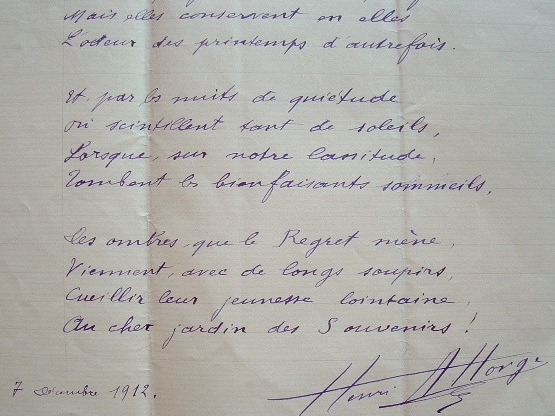 Mais elles conservent en elles
L'odeur des printemps d'autrefois.
Et, par les nuits de quiétude
où scintillent tant de soleils,
Lorsque, sur notre lassitude,
Tombent les bienfaisants sommeils,
Les ombres, que le Regret mène,
Viennent, avec de longs soupirs,
Cueillir leur jeunesse lointaine,
Au cher jardin des Souvenirs !
Henri Allorge
7 Décembre 1912.